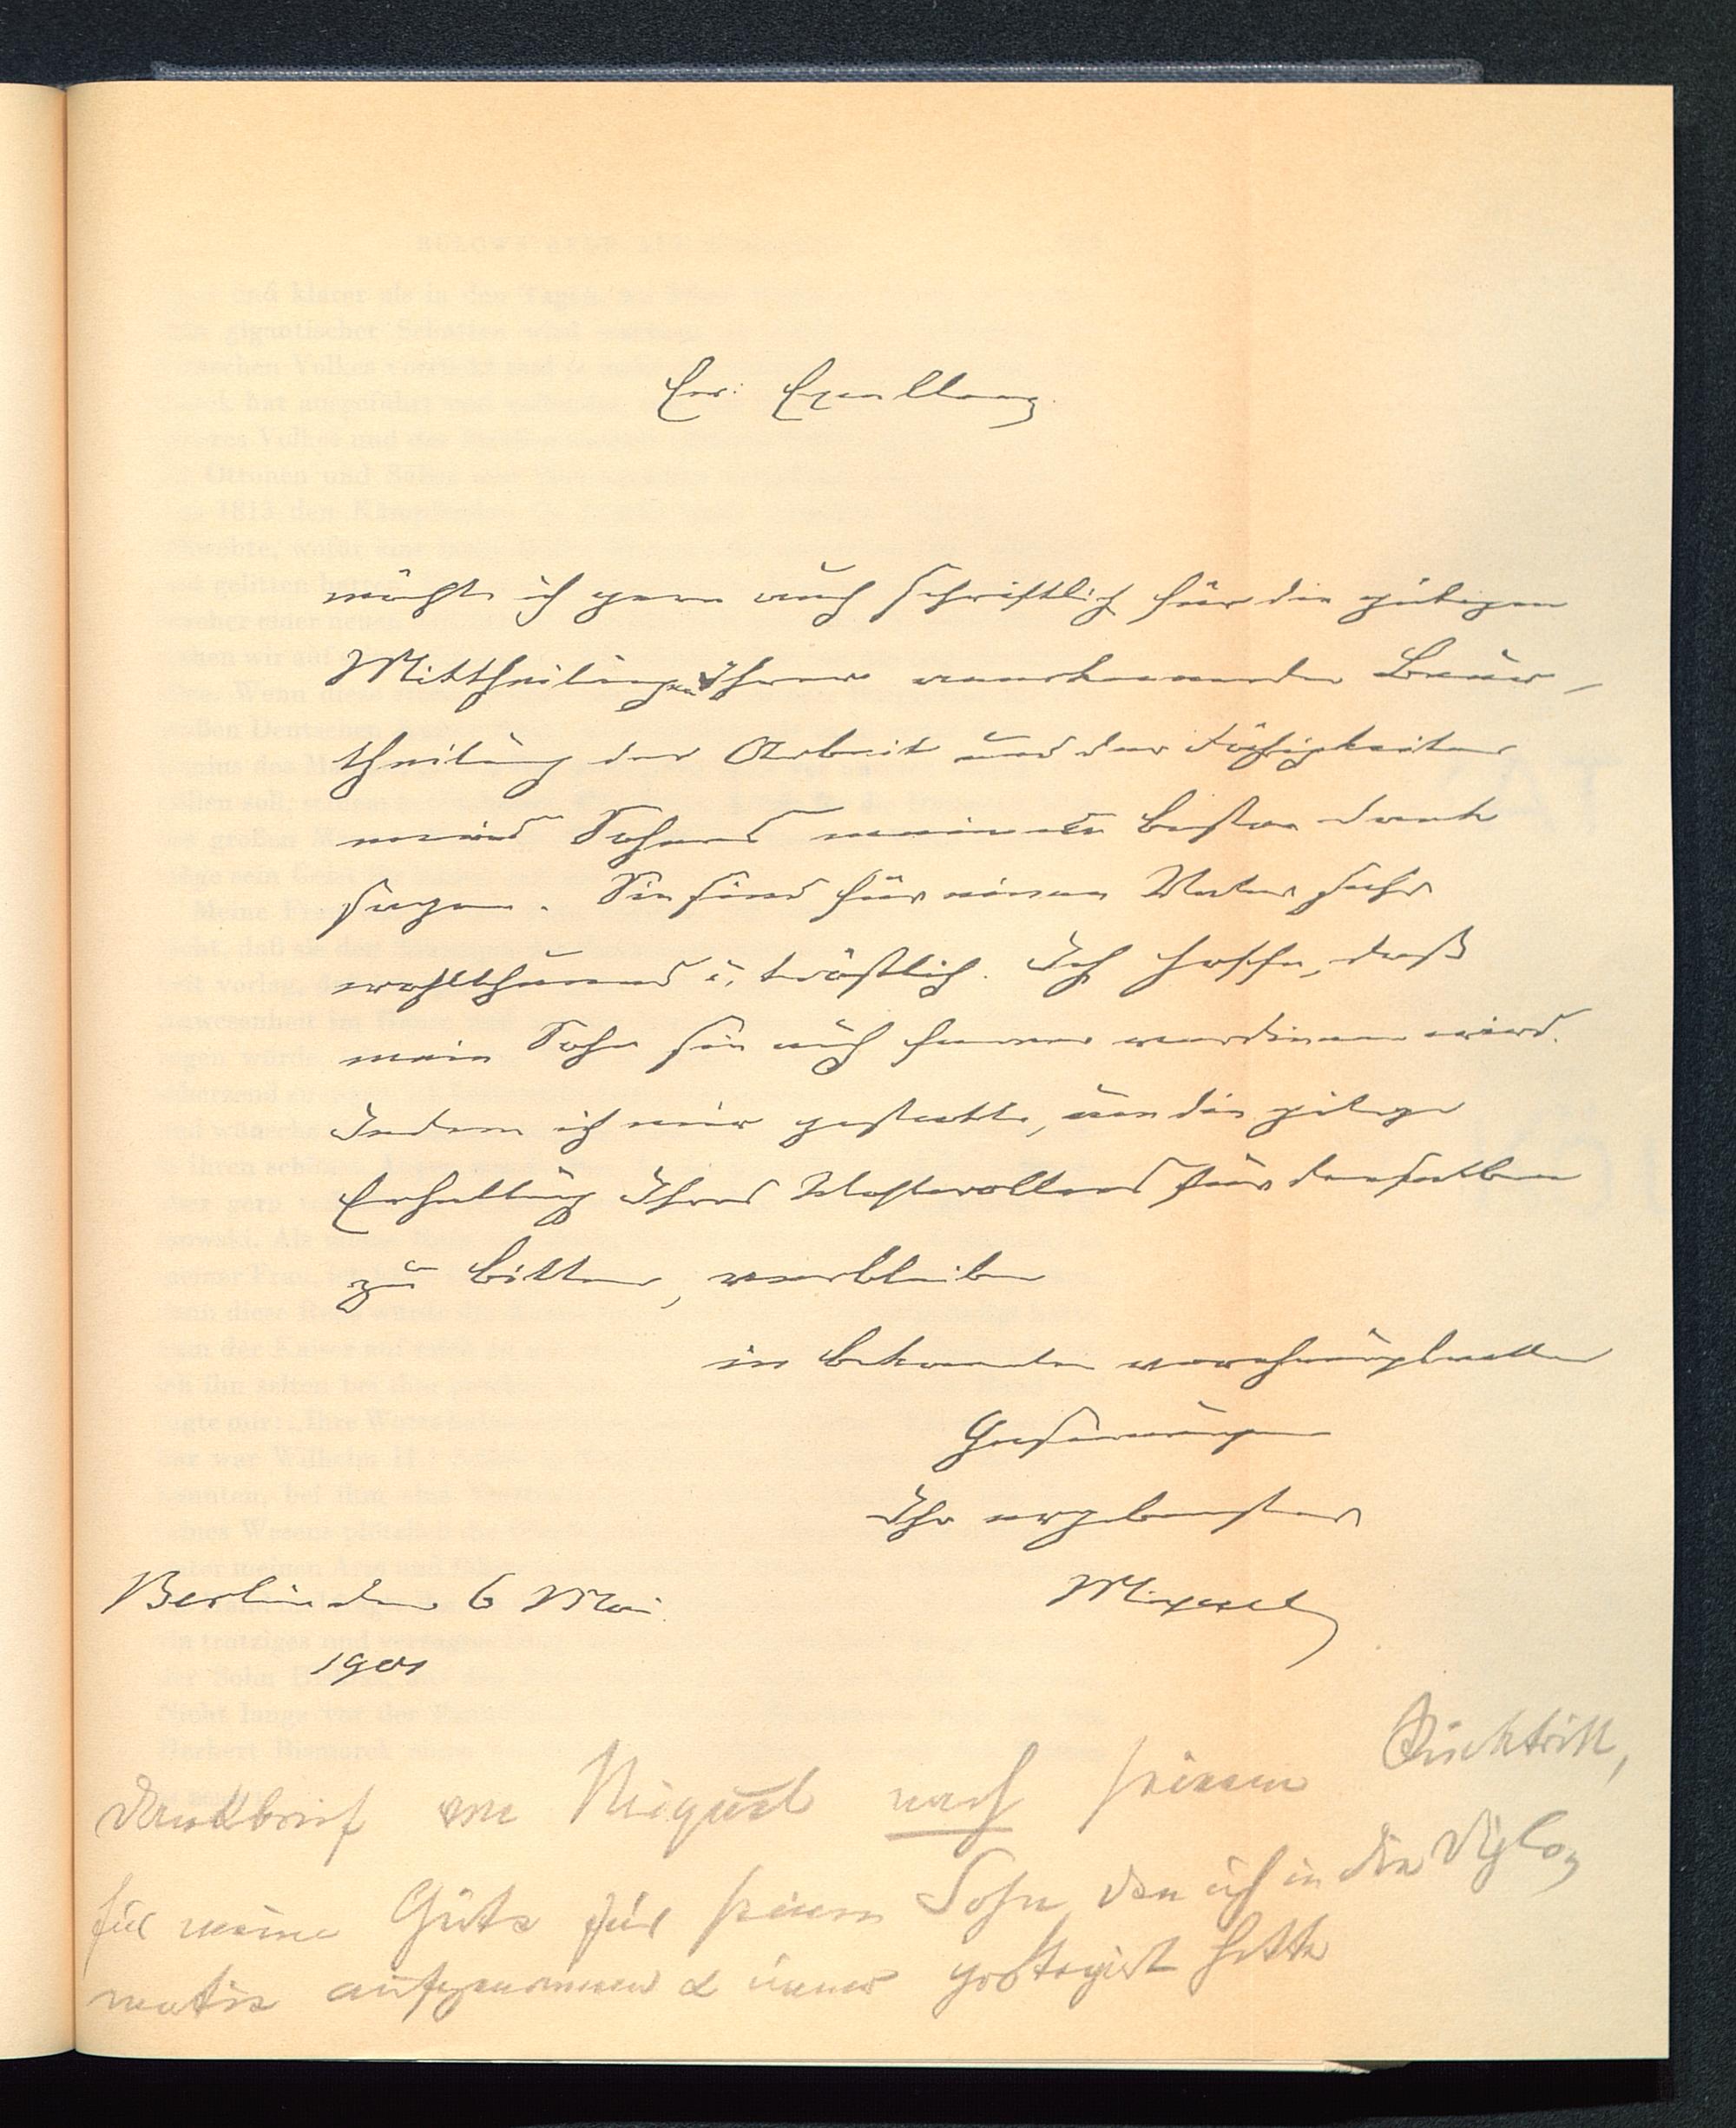 Ew: Excellenz
möchte ich gern auch schriftlich für die gütigen
Mittheilungen Ihrer anerkennenden Beur-
theilung der Arbeit und der Fähigkeiten
meines Sohnes meinen besten Dank
sagen. Sie sind für einen Vater sehr
wohlthuend u. tröstlich. Ich hoffe, daß
mein Sohn sie auch ferner verdienen wird.
Indem ich mir gestatte, um die gütige
Erhaltung Ihres Wohlwollens für denselben
zu bitten, verbleibe
in bekannter verehrungsvoller
Gesinnung
Ihr ergebenster
Miquel
Berlin den 6 Mai
1901
Dankbrief von Miquel nach seinem Rücktritt,
für meine Güte für seinen Sohn, den ich in die Diplo-
matie aufgenommen & immer protegirt hatte